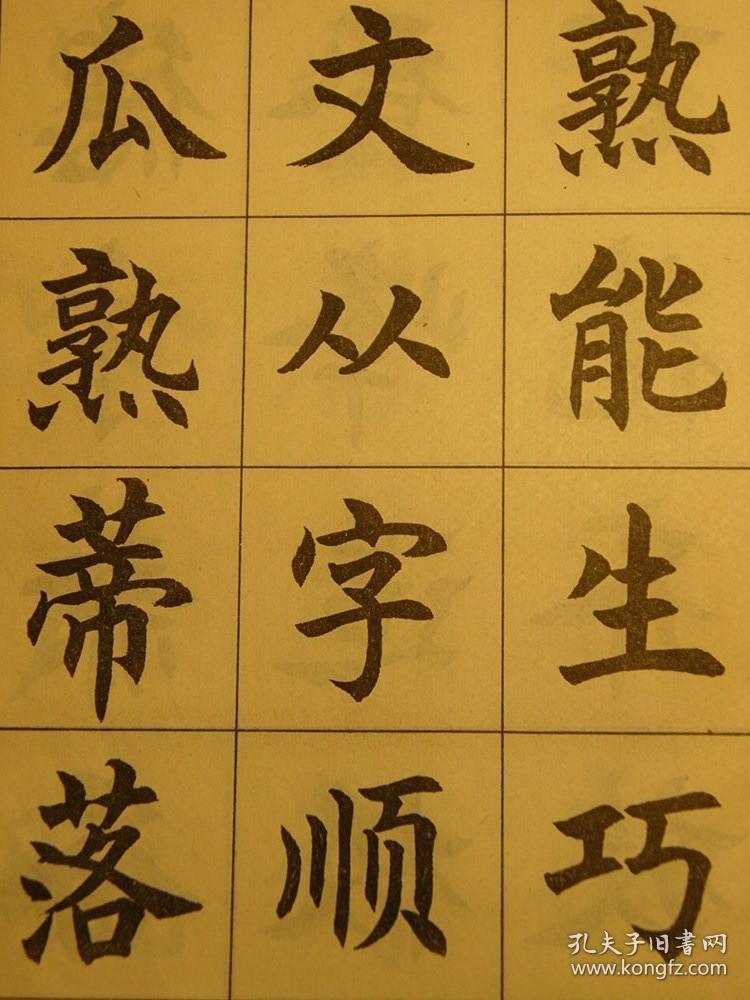 熟能生巧
文从字顺
瓜熟蒂落
孔夫子旧書网
www.kongfz.com